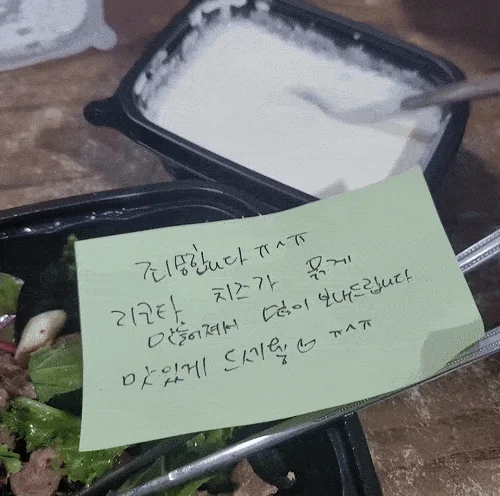 죄송합니다 ㅠㅅㅠ
리코타 치즈가 묽게
만들어져서 많이 보내드립니다
맛있게 드세용 ㅠㅅㅠ